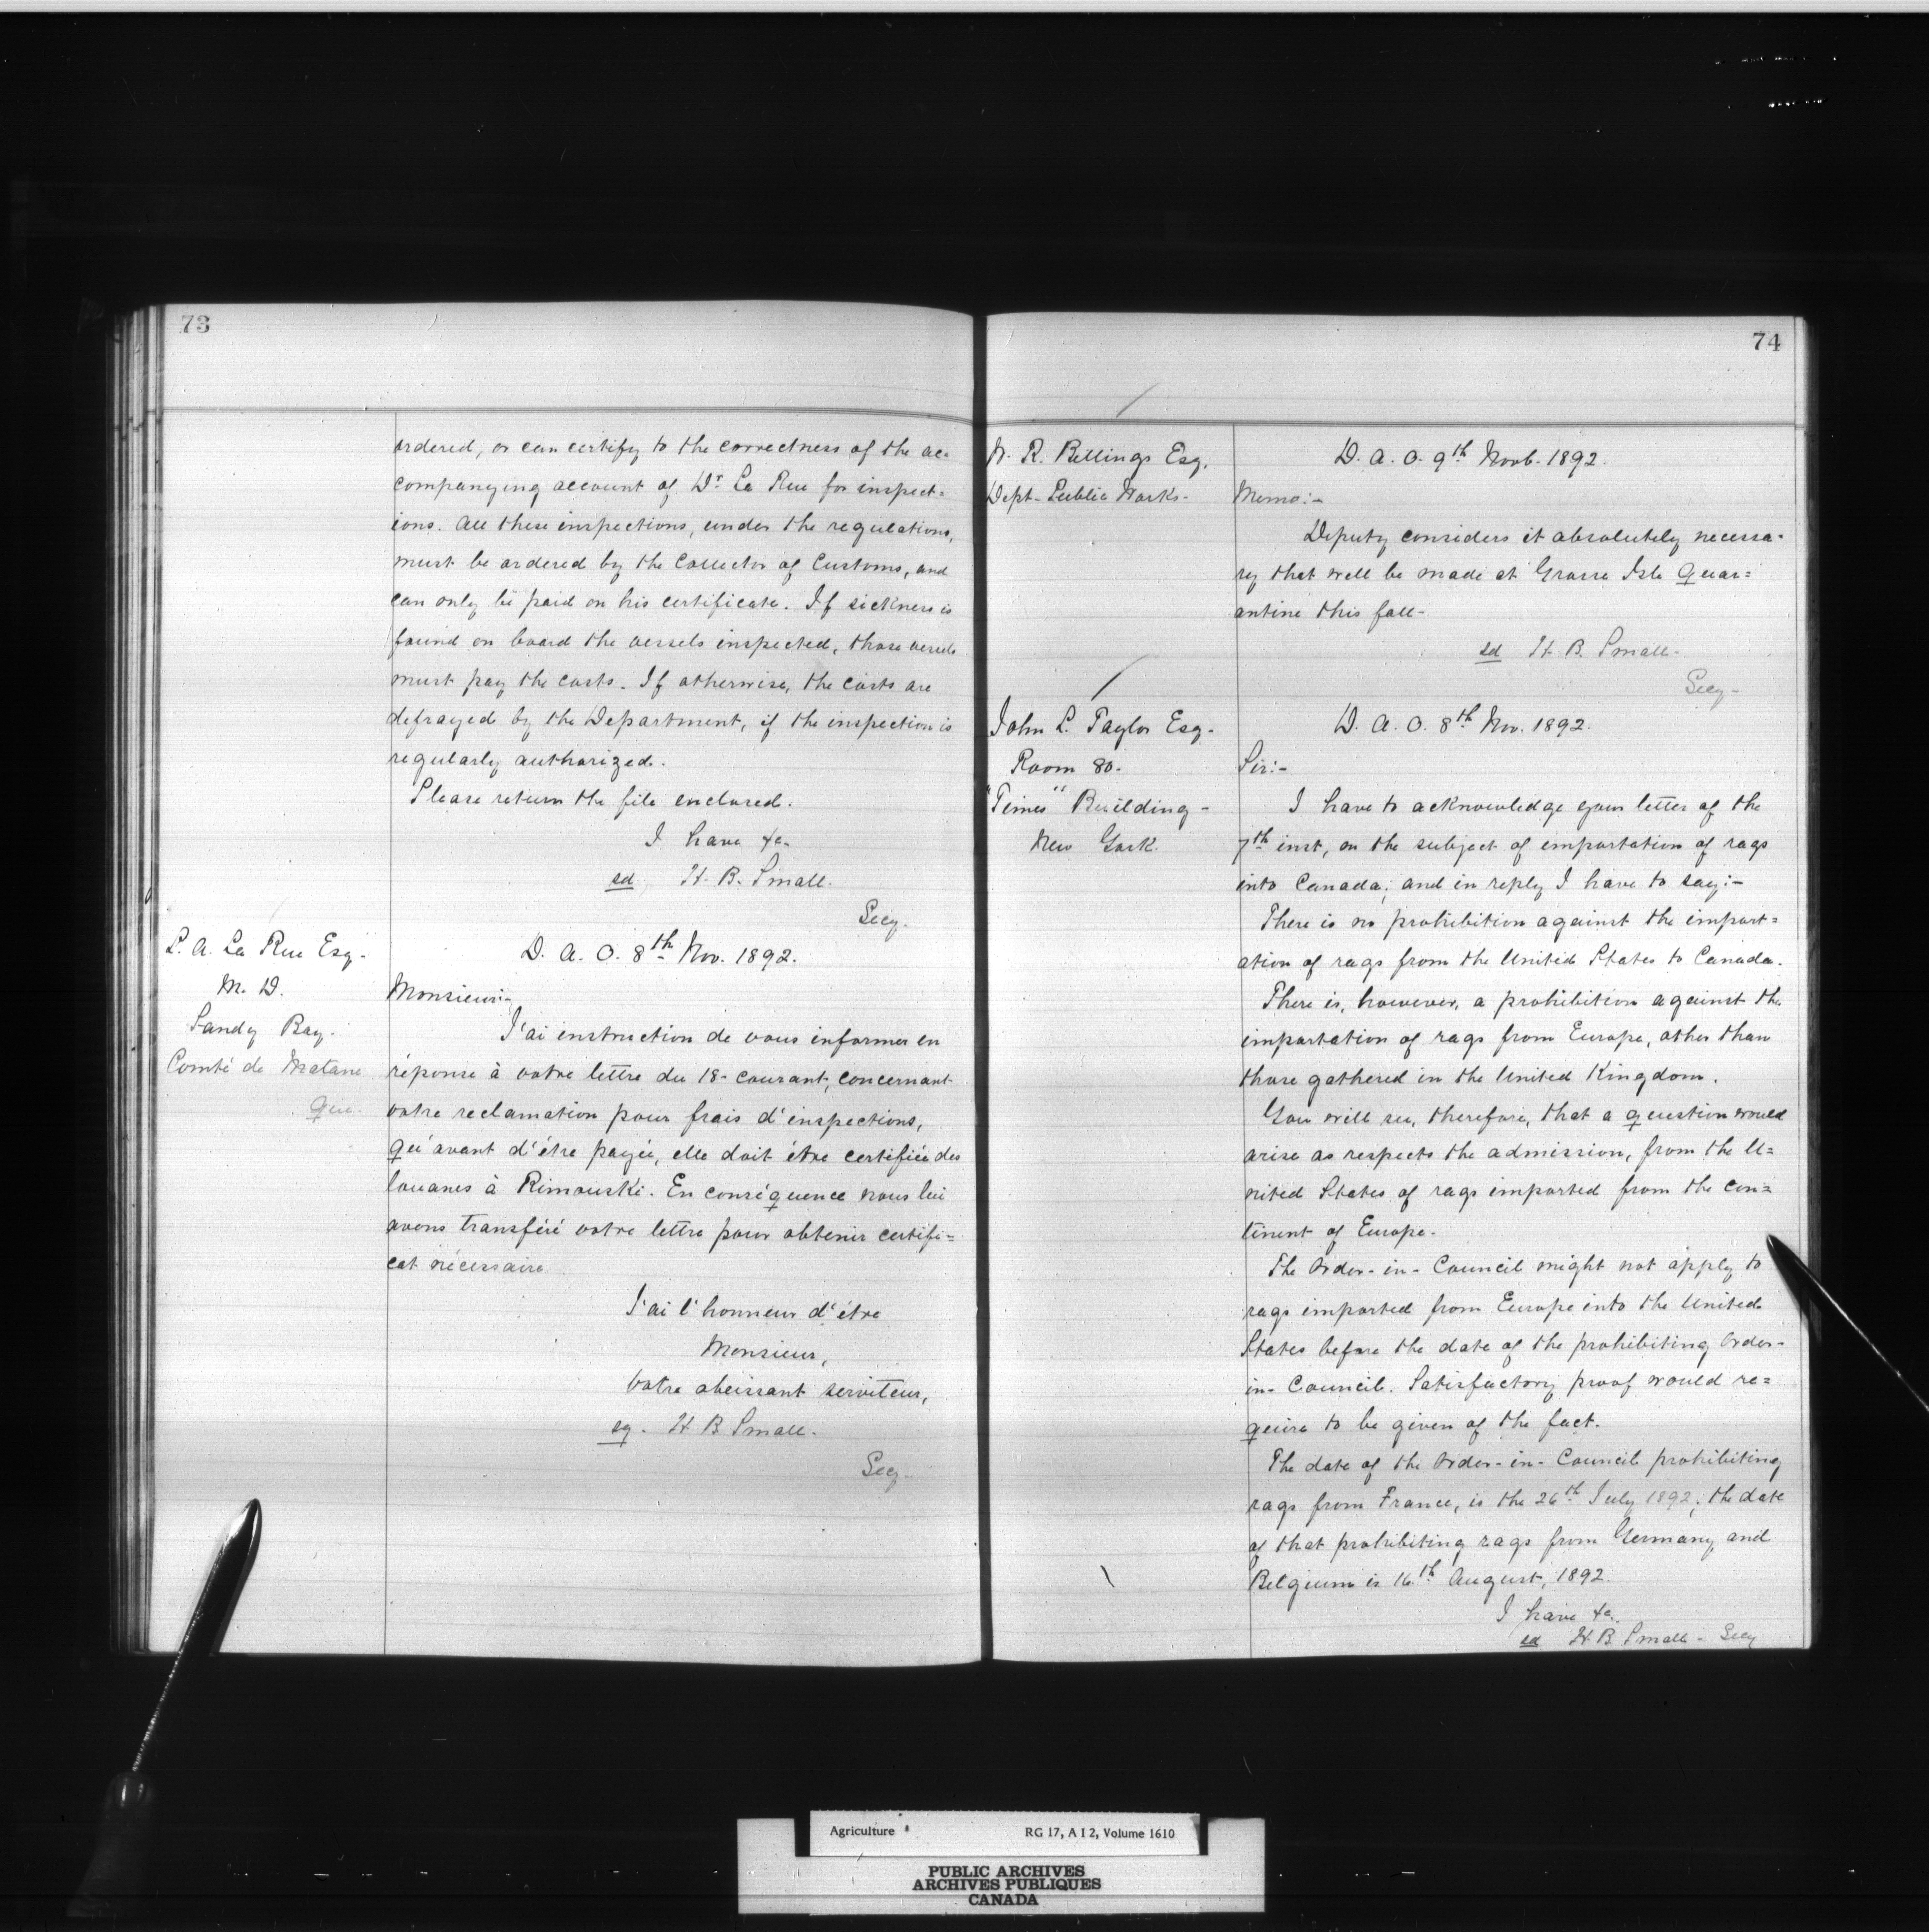 73
ordered, or can certify to the correctness of the ac-
companying account of Dr. La Rue for inspect=
ions. All these inspections, under the regulations,
must be ordered by the Collector of Customs, and
can only be paid on his certificate. If sickness is
found on board the vessels inspected, those vessels
must pay the costs. If otherwise, the costs are
defrayed by the Department, if the inspection is
regularly authorized.
Please return the file enclosed.
I have &c.
sd H. B. Small.
Secy.
L. A. La Rue Esq-
M. D.
Sandy Bay.
Comté de Matane
Que.
D. A. O. 8th Nov. 1892.
Monsieur:-
J'ai instruction de vous informer en
réponse à votre lettre du 18- courant, concernant
votre reclamation pour frais d'inspections,
qu'avant d'être payée, elle doit être certifiée des
louanes à Rimouski. En conséquence nous lui
avons transféré votre lettre pour obtenir certifi=
cat nécessaire
J'ai l'honneur d'être
Monsieur,
Votre obeissant serviteur,
sg. H B Small.
Secy.
74
W. R. Billings Esq.
Dept- Public Works-
D. A. O. 9th Novb. 1892.
Memo:-
Deputy considers it absolutely necessa-
ry that well be made at Grosse Isle Quar=
antine this fall-
sd H. B. Small-
Secy-
John L. Taylor Esq-
Room 80.
"Times" Building-
New York.
D. A. O. 8th Nov. 1892.
Sir:-
I have to acknowledge your letter of the
7th inst, on the subject of importation of rags
into Canada; and in reply I have to say:-
There is no prohibition against the import=
ation of rags from the United States to Canada.
There is, however, a prohibition against the
importation of rags from Europe, other than
those gathered in the United Kingdom.
You will see, therefore, that a question would
arise as respects the admission, from the U=
nited States of rags imported from the con=
tinent of Europe.
The Order-in-Council might not apply to
rags imported from Europe into the United
States before the date of the prohibiting Order-
in-Council. Satisfactory proof would re=
quire to be given of the fact.
The date of the Order-in-Council prohibiting
rags from France, is the 26th July 1892; the date
of that prohibiting rags from Germany and
Belgium is 16th August, 1892.
I have &c.
sd H. B. Small- Secy
Agriculture RG 17, A I 2, Volume 1610
PUBLIC ARCHIVES
ARCHIVES PUBLIQUES
CANADA